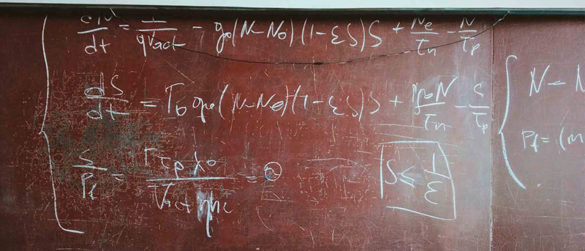 dN/dt = I/qVact - g₀(N-N₀)(1-εS)S + Ne/τn - N/τp
dS/dt = Γ₀g₀(N-N₀)(1-εS)S + N/τn - S/τp
S/Pf = Γτpλ₀/Vactηhc = ℗
S ≤ 1/ε
N - N
Pf = (m